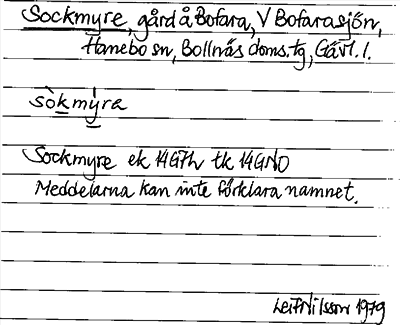 Sockmyre, gård å Bofara, V Bofarasjön,
Hanebo sn, Bollnäs doms.tg, Gävl. l.
sòkmýra
Sockmyre ek 14G7h tk 14GNO
Meddelarna kan inte förklara namnet.
Leif Nilsson 1979